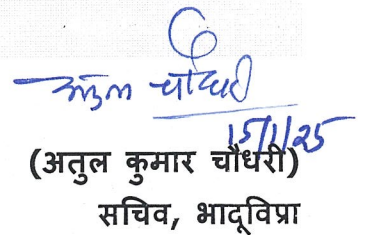 अतुल चौधरी
15/1/25
(अतुल कुमार चौधरी)
सचिव, भादूविप्रा